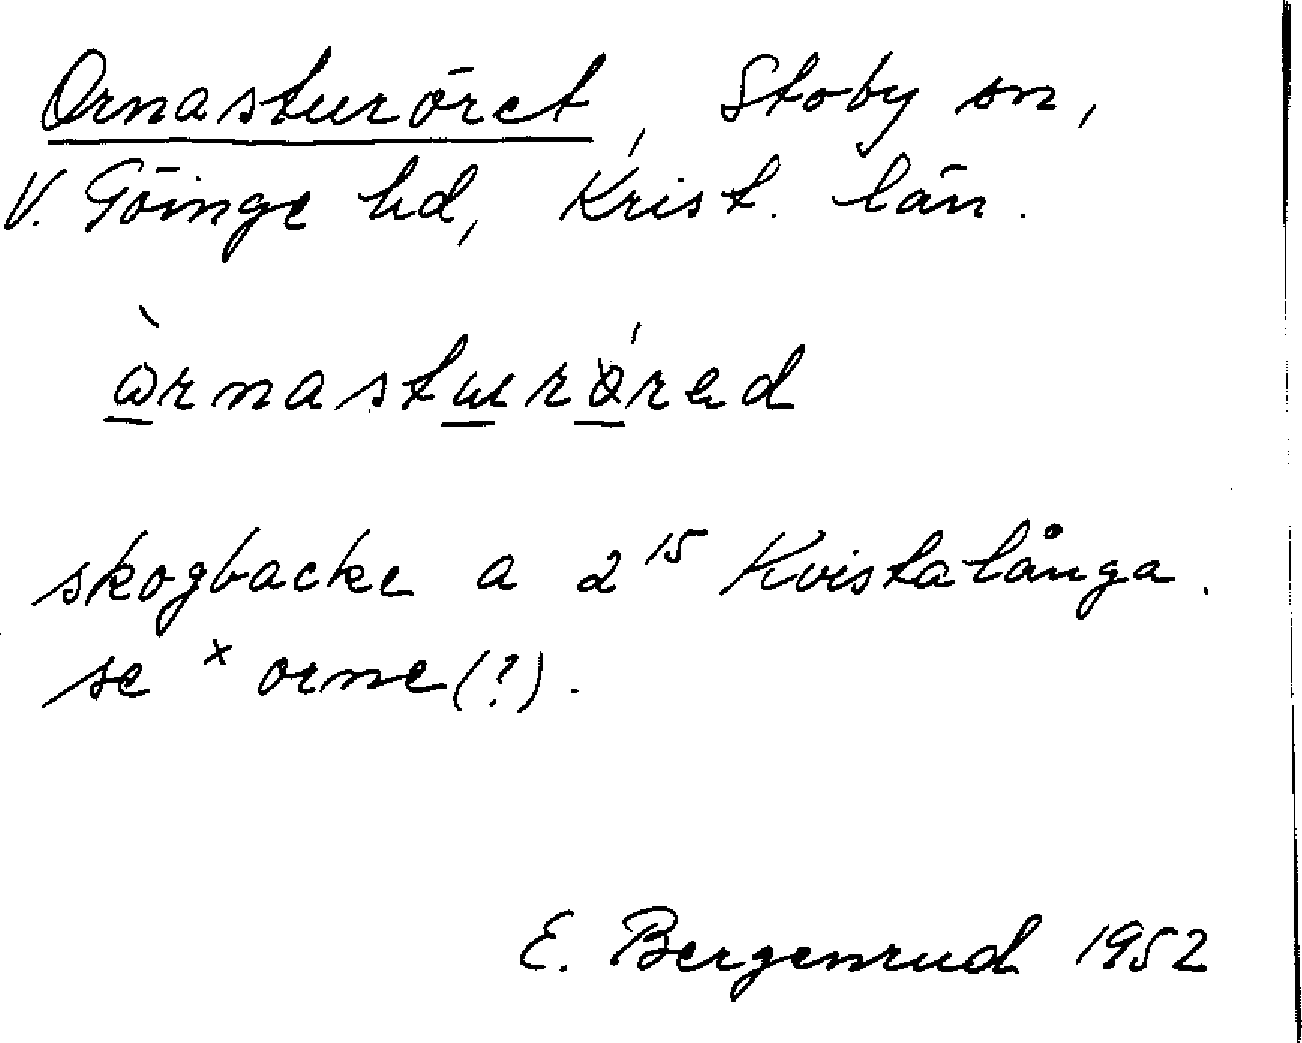 Ornasturöret, Stoby sn,
V. Göinge hd, Krist. län.
skogbacke a 2¹⁵ Kvistalånga.
se ˣ orne (?).
E. Bergenrud 1952